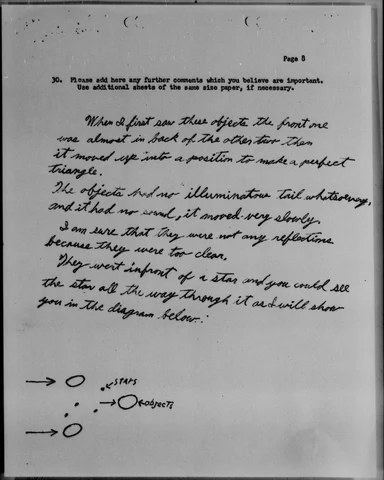 Page 8
30. Please add here any further comments which you believe are important.
Use additional sheets of the same size paper, if necessary.
When I first saw these objects the front one
was almost in back of the other two then
it moved up into a position to make a perfect
triangle.
The objects had no illuminatous tril whatsoever,
and it had no sound, it moved very slowly.
I am sure that they were not any reflections
because they were too clear.
They went infront of a star and you could see
the star all the way through it as I will show
you in the diagram below:
STARS
objects